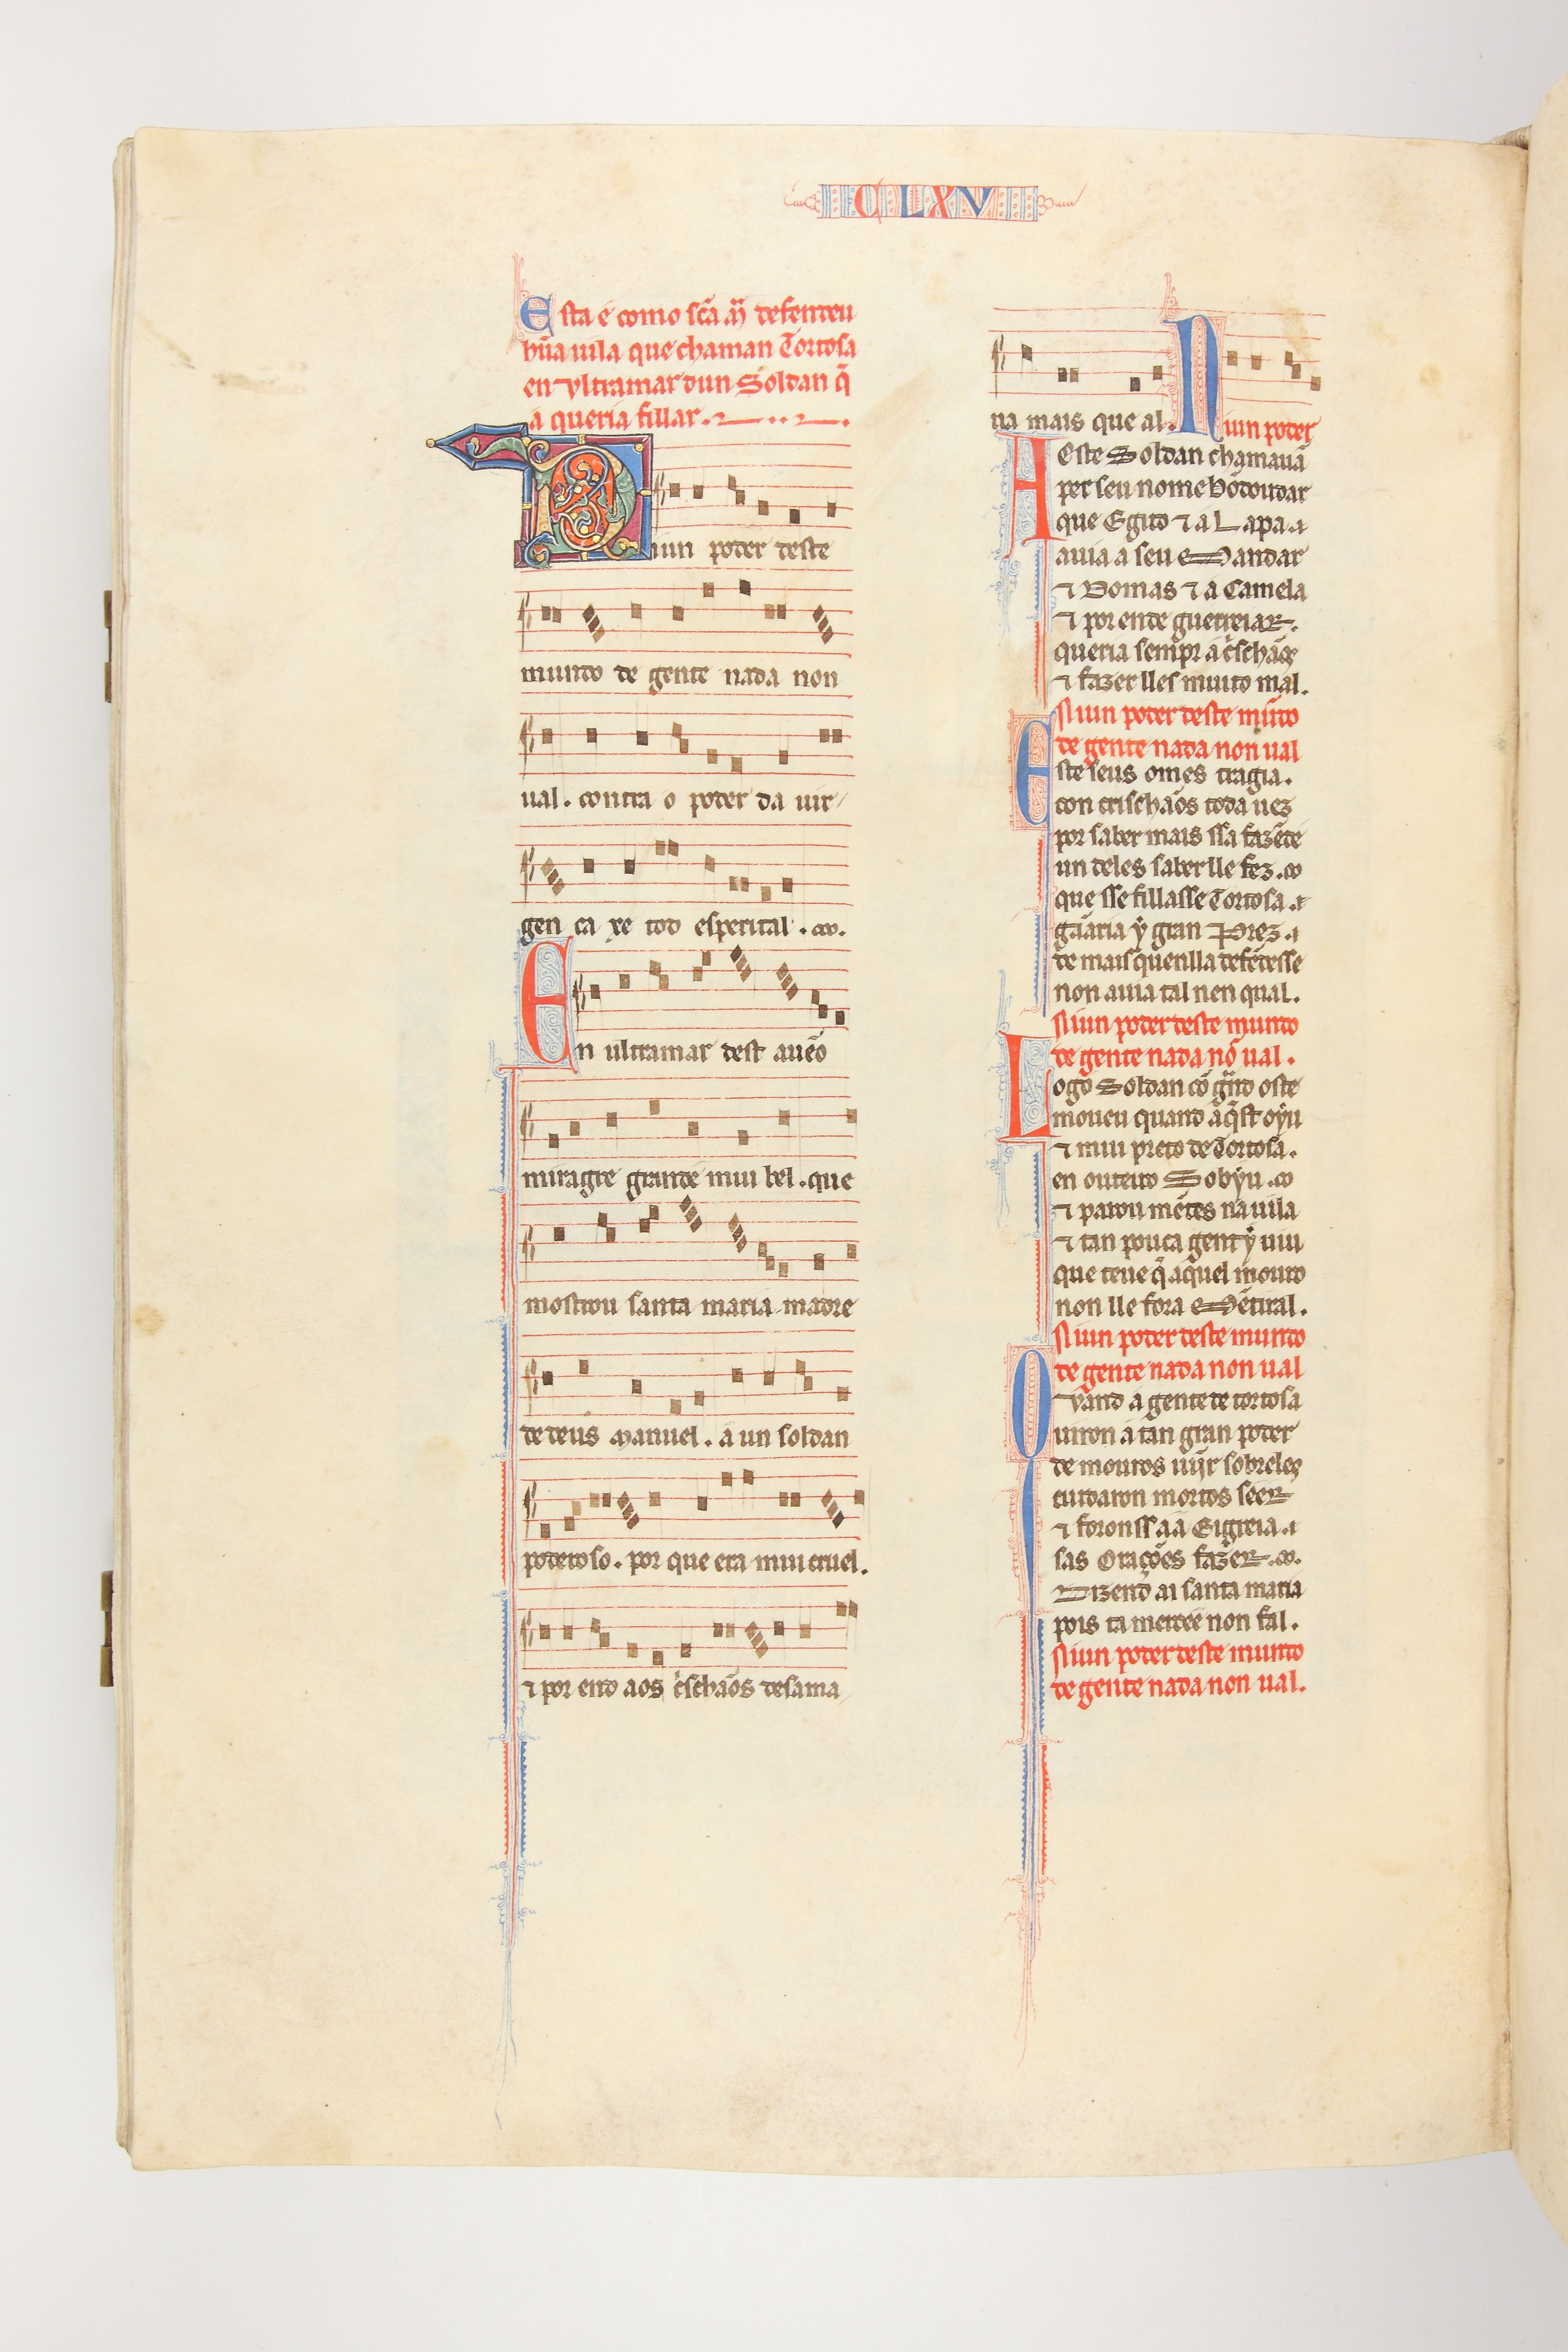 CLXV
Esta é como scã mã defendeu
hũa uila que chaman Tortosa
en Ultramar dun Soldan q̃
á queria fillar.
Niun poder deste
mundo de gente nada non
ual. contra o poder da uir
gen ca xe tod esperital.
En ultramar dest auẽo
miragre grande mui bel. que
mostrou santa maria madre
de deus Manuel. a un soldan
poderoso. por que era mui cruel.
⁊ por end aos c̃schãos desama
ua mais que al. Niun poder
Aeste Soldan chamauã
per seu nome bõdoudar
que Egito ⁊ a Lapa
auia a seu Mandar
⁊ Domas ⁊ a Camela
⁊ por ende guerreiar.
queria sempr a c̃schãos
⁊ fazer lles muito mal.
Niun poder deste mũdo
de gente nada non ual
Este seus omes tragia.
con crischãos toda uez
por saber mais ssa fazẽde
un deles saber lle fez.
que sse fillasse Tortosa.
gãaria ý gran Prez.
de mais quen lla defẽdesse
non auia tal nen qual.
Niun poder deste mundo
de gente nada nõ ual.
Logo Soldan cõ grãd oste
moueu quand aq̃st oýu
⁊ mui preto de Tortosa.
en outeiro Sobýu.
⁊ parou mẽtes na uila
⁊ tan pouca gent ý uiu
que teue q̃ aquel mouro
non lle fora Mẽtiral.
Niun poder deste mundo
de gente nada non ual
Quand a gente de tortosa
uiron a tan gran poder
de mouros uĩjr sobreles
cuidaron mortos seer
⁊ foronss aa Eigreia.
sas Orações fazer.
Dizend ai santa maria
pois ta mercee non fal.
Niun poder deste mundo
de gente nada non ual.